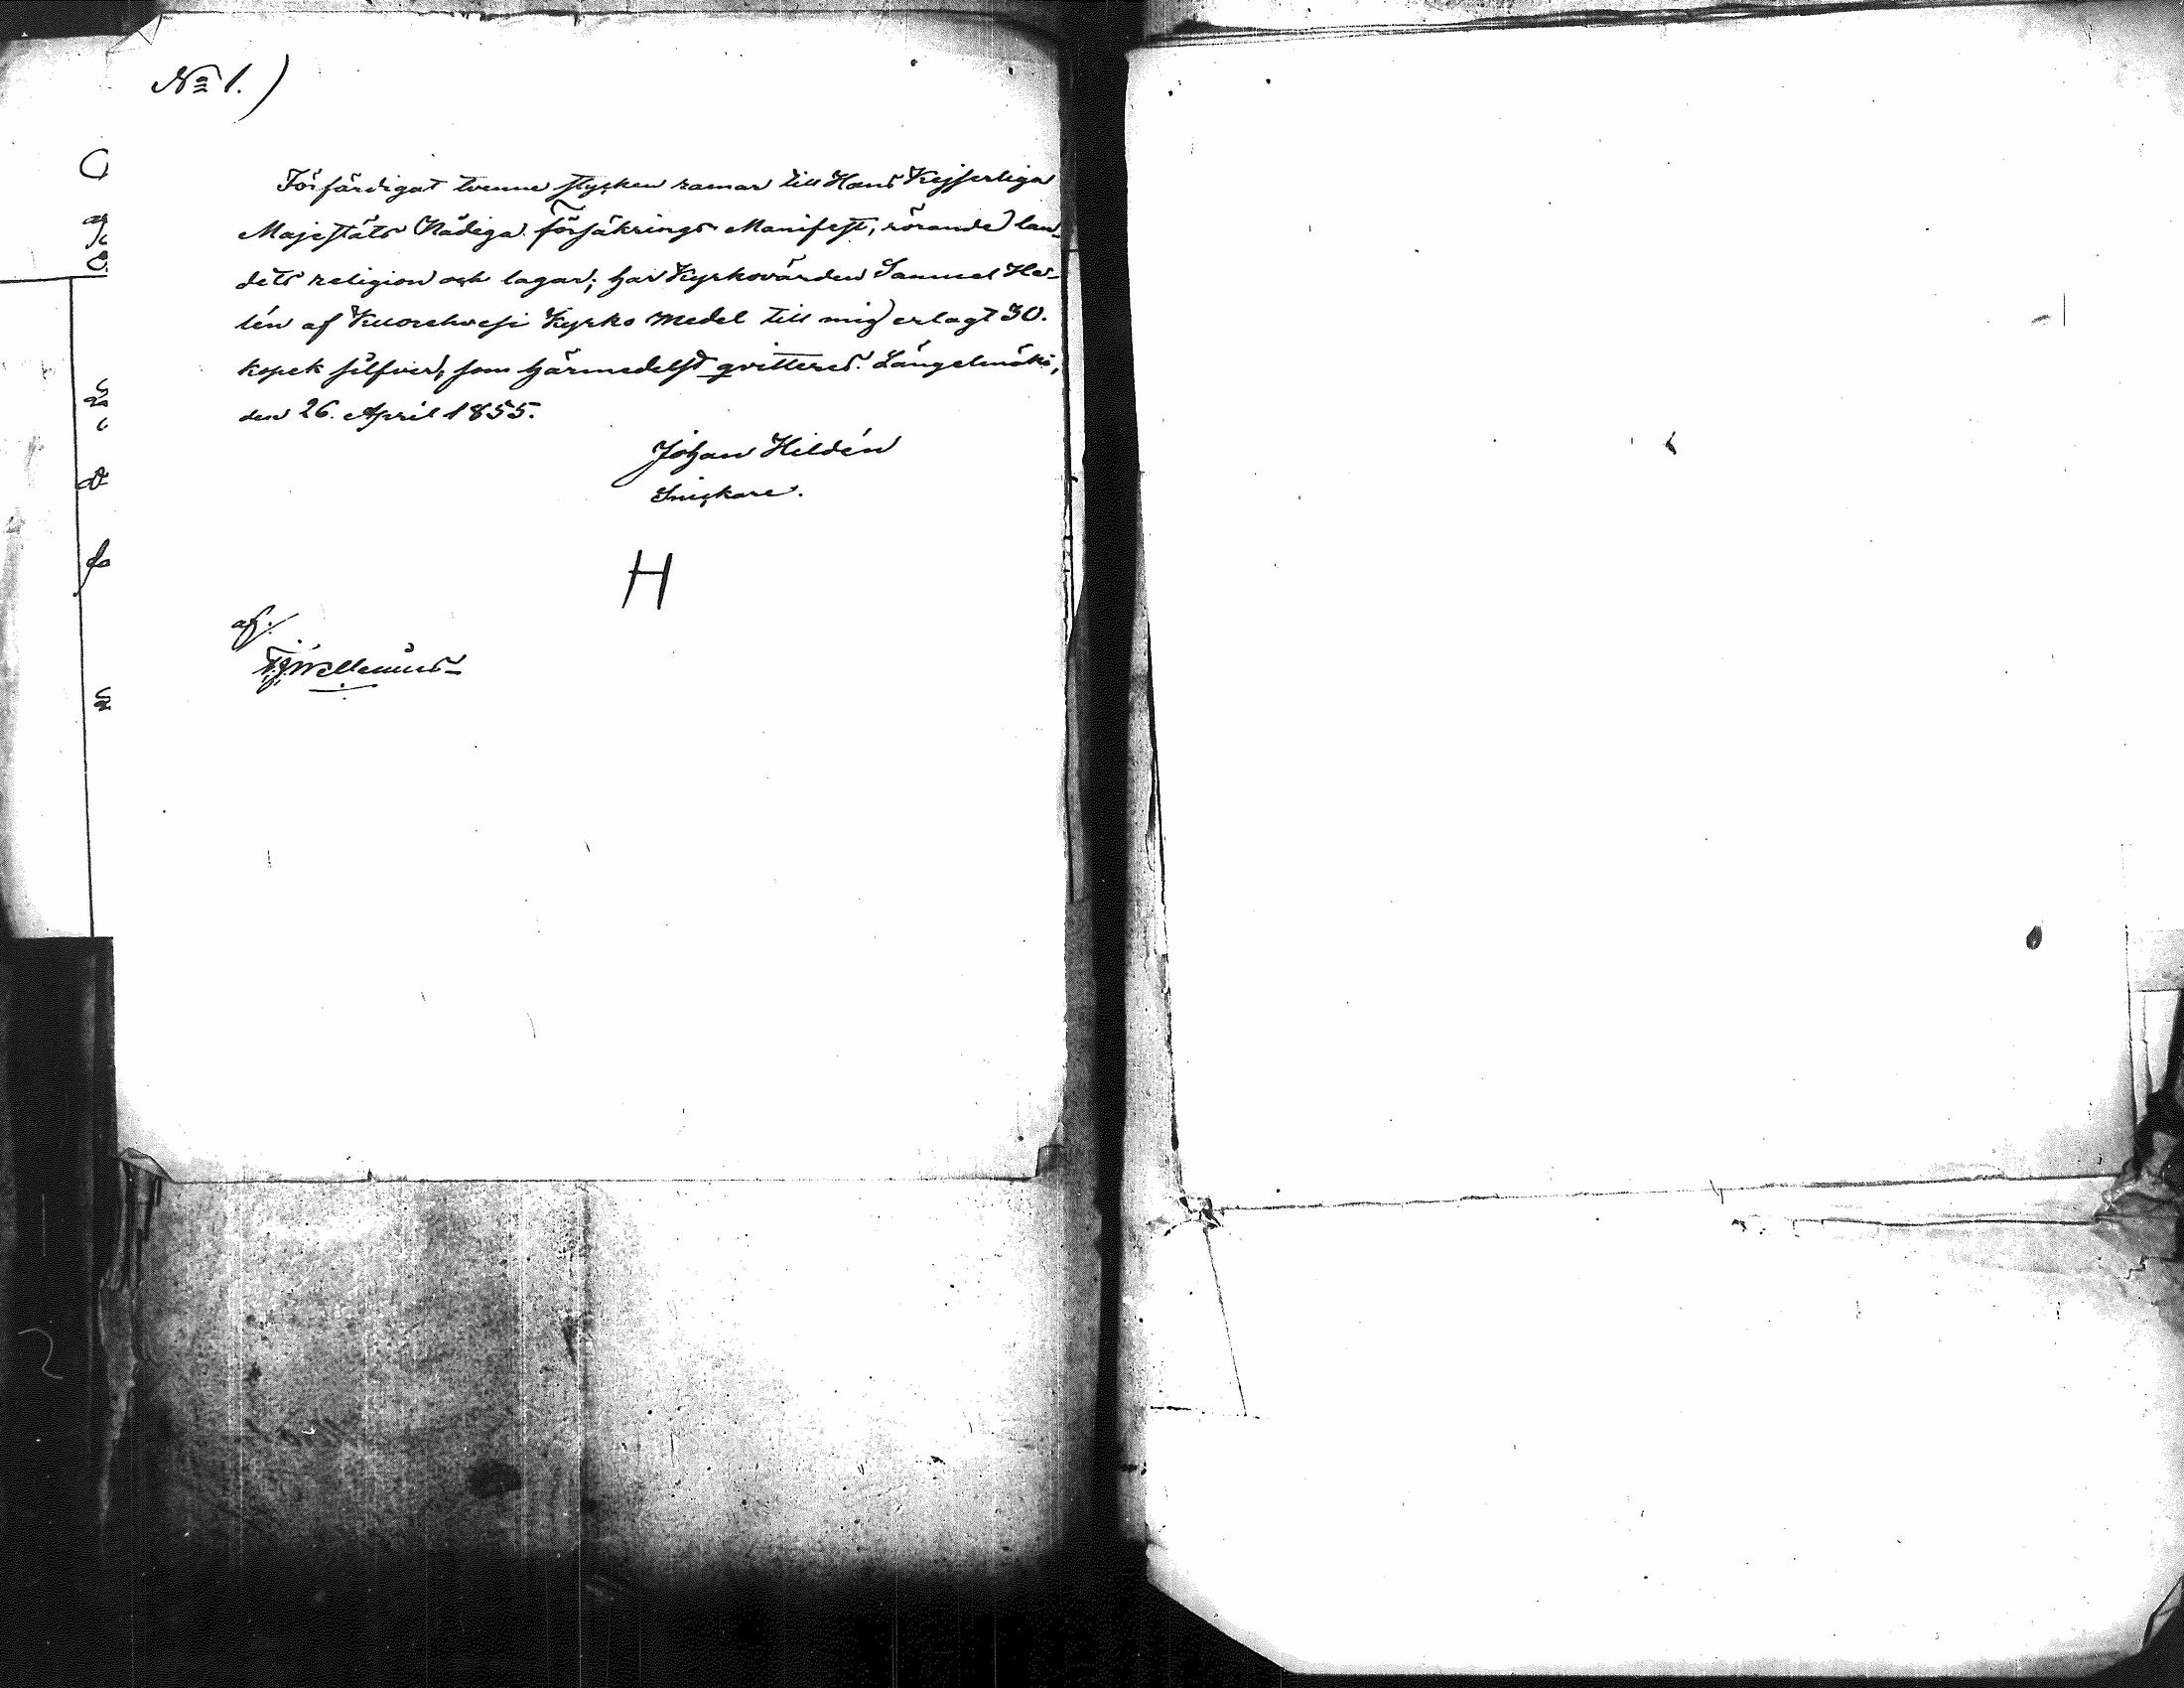 No 1.)
Förfärdigat tvenne stycken ramar till Hans Kejserliga
Majestäts Nådiga försäkrings Manifest, rörande lan-
dets religion och lagar; har Kyrkovärden Samuel He-
lén af Kuorehvesi Kyrko medel till mig erlagt 30.
kopek silfver, som härmedelst qvitteras. Längelmäki,
den 26. April 1855.
Johan Hildén
Snickare.
H
af: